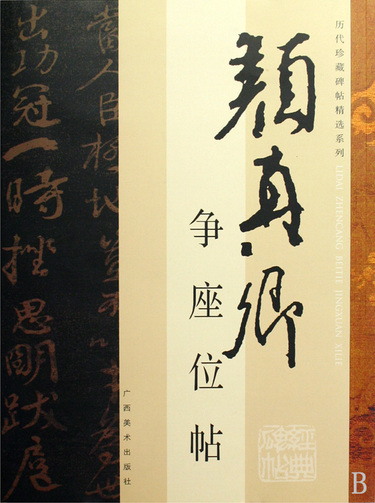 历代珍藏碑帖精选系列
LIDAI ZHENCANG BEITIE JINGXUAN XILIE
顏真卿
争座位帖
广西美术出版社
出功冠一時挫思明跋扈
經典碑帖
B